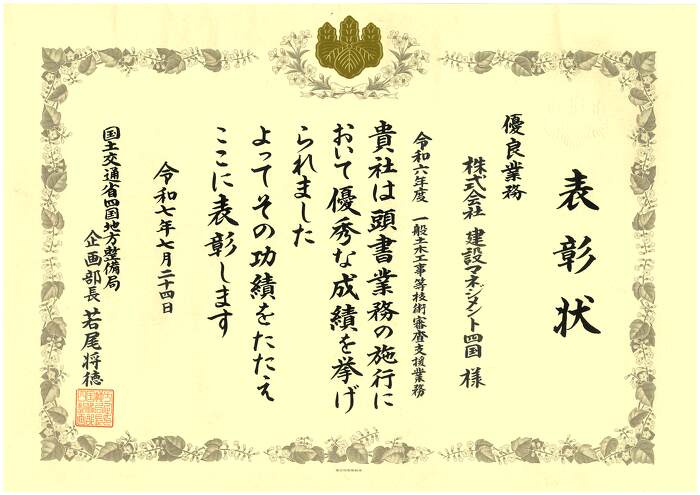 表彰状
優良業務
株式会社 建設マネジメント四国 様
令和六年度 一般土木工事等技術審査支援業務
貴社は頭書業務の施行に
おいて優秀な成績を挙げ
られました
よってその功績をたたえ
ここに表彰します
令和七年七月二十四日
国土交通省四国地方整備局
企画部長 若尾将徳